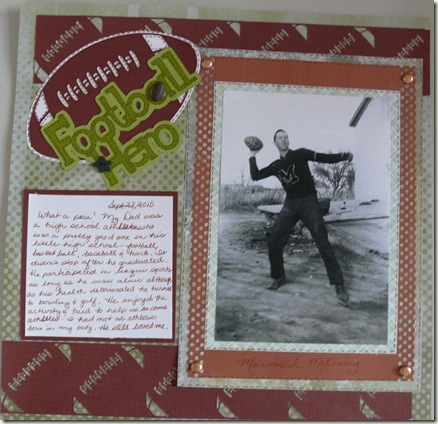 Football
Hero
M
Sept 22, 2010
What a pose! My Dad was
a high school athlete who
was a pretty good one in his
little high school - football,
basketball, baseball & track. It
didn't stop after he graduated.
He participated in league sports
as long as he was alive although
as his health deteriorated he turned
to bowling & golf. He enjoyed the
activity & tried to help us become
athletes. I had not an athletic
bone in my body. He still loved me.